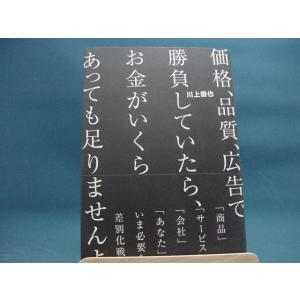 価格、品質、広告で
勝負していたら、
お金がいくら
あっても足りませんよ
川上徹也
「商品」
「サービス
「会社」
「あなた」
いま必要
差別化戦